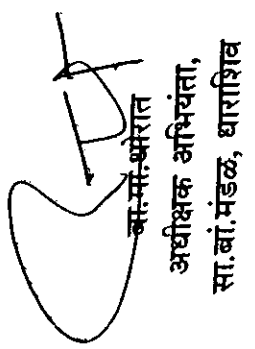 बा.मा.थोरात
अधीक्षक अभियंता,
सा.बां.मंडळ, धाराशिव